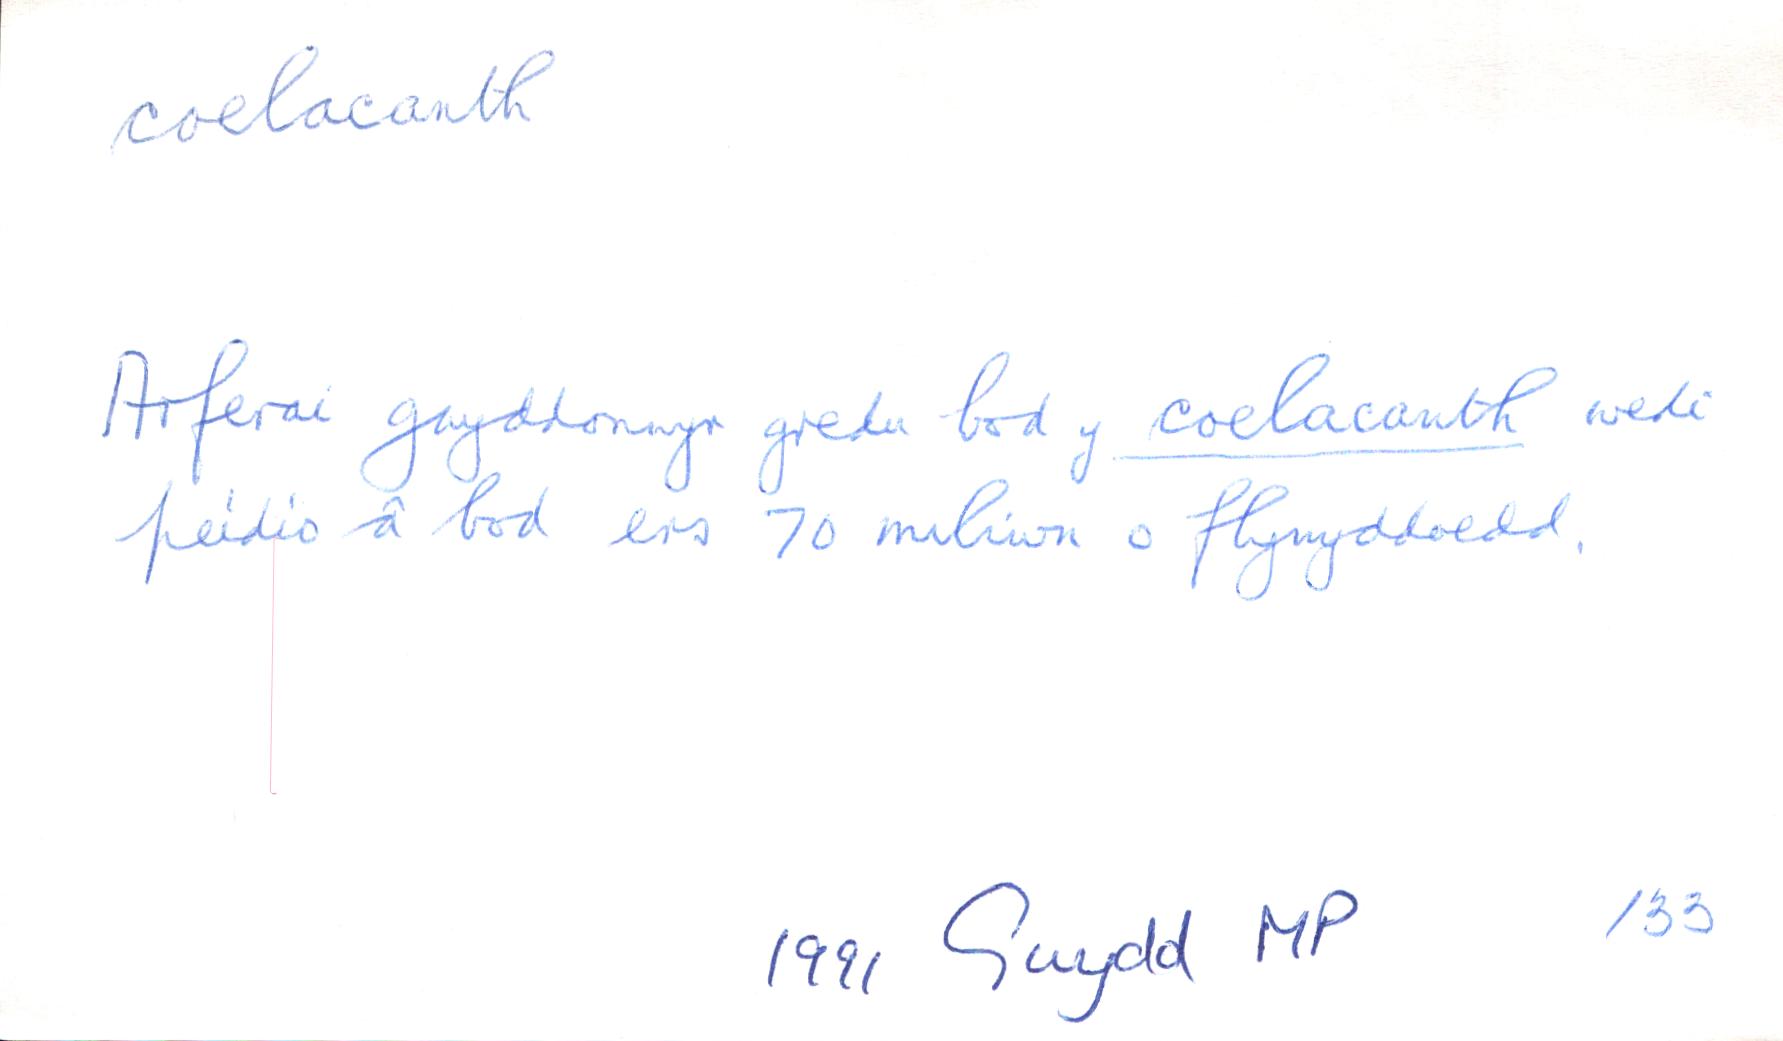 coelacanth
Arferai gwyddonwyr gredu bod y coelacanth wedi
peidio â bod ers 70 miliwn o flynyddoedd.
1991 Gwydd MP 133